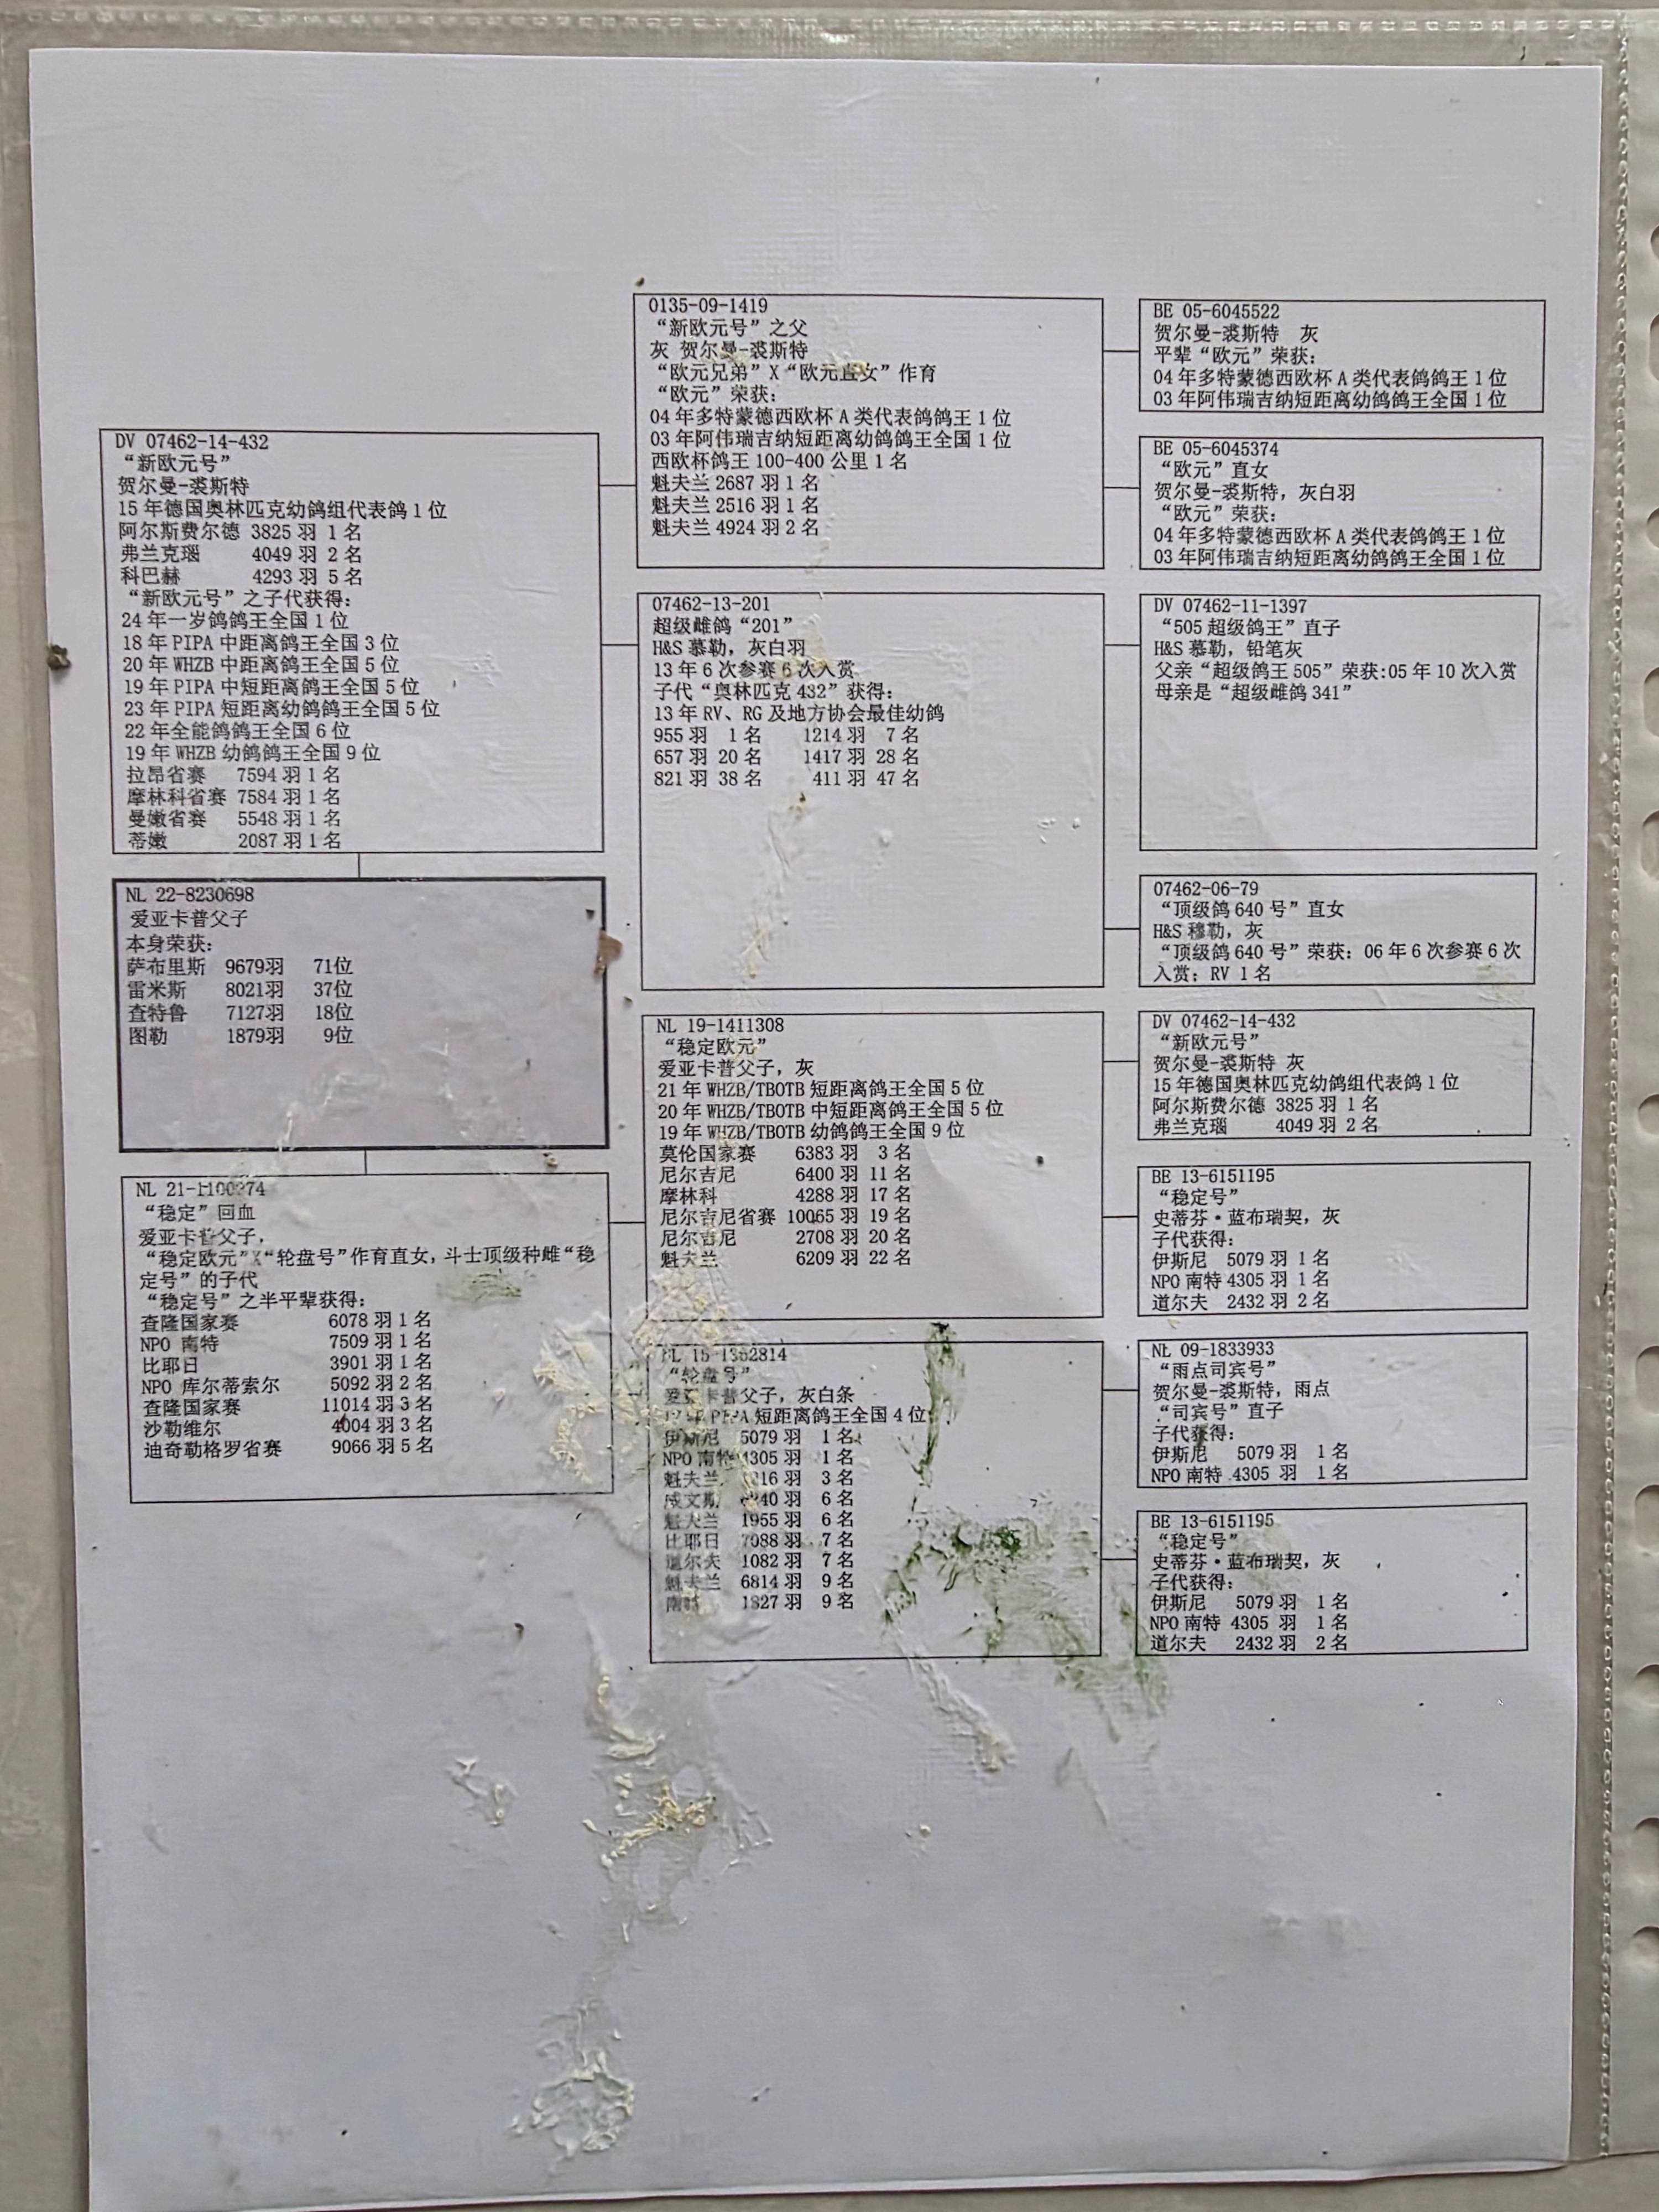 DV 07462-14-432
“新欧元号”
贺尔曼-裘斯特
15年德国奥林匹克幼鸽组代表鸽1位
阿尔斯费尔德 3825羽 1名
弗兰克瑙 4049羽 2名
科巴赫 4293羽 5名
“新欧元号”之子代获得:
24年一岁鸽鸽王全国1位
18年PIPA中距离鸽王全国3位
20年WHZB中距离鸽王全国5位
19年PIPA中短距离鸽王全国5位
23年PIPA短距离幼鸽鸽王全国5位
22年全能鸽鸽王全国6位
19年WHZB幼鸽鸽王全国9位
拉昂省赛 7594羽1名
摩林科省赛 7584羽1名
曼嫩省赛 5548羽1名
蒂嫩 2087羽1名
NL 22-8230698
爱亚卡普父子
本身荣获:
萨布里斯 9679羽 71位
雷米斯 8021羽 37位
查特鲁 7127羽 18位
图勒 1879羽 9位
“稳定”回血
爱亚卡普父子,
“稳定欧元”X“轮盘号”作育直女,斗士顶级种雌“稳
定号”的子代
“稳定号”之半平辈获得:
查隆国家赛 6078羽1名
NPO 南特 7509羽1名
比耶日 3901羽1名
NPO 库尔蒂索尔 5092羽2名
查隆国家赛 11014羽3名
沙勒维尔 4004羽3名
迪奇勒格罗省赛 9066羽5名
0135-09-1419
“新欧元号”之父
灰 贺尔曼-裘斯特
“欧元兄弟”X“欧元直女”作育
“欧元”荣获:
04年多特蒙德西欧杯A类代表鸽鸽王1位
03年阿伟瑞吉纳短距离幼鸽鸽王全国1位
西欧杯鸽王100-400公里1名
魁夫兰2687羽1名
魁夫兰2516羽1名
魁夫兰4924羽2名
07462-13-201
超级雌鸽“201”
H&S慕勒,灰白羽
13年6次参赛6次入赏
子代“奥林匹克432”获得:
13年RV、RG及地方协会最佳幼鸽
955羽 1名 1214羽 7名
657羽 20名 1417羽 28名
821羽 38名 411羽 47名
NL 19-1411308
“稳定欧元”
爱亚卡普父子,灰
21年WHZB/TBOTB短距离鸽王全国5位
20年WHZB/TBOTB中短距离鸽王全国5位
19年WHZB/TBOTB幼鸽鸽王全国9位
莫伦国家赛 6383羽 3名
尼尔吉尼 6400羽 11名
摩林科 4288羽 17名
尼尔吉尼省赛 10065羽 19名
尼尔吉尼 2708羽 20名
魁夫兰 6209羽 22名
“轮盘号”
父子,灰白条
短距离鸽王全国4位
伊斯尼 5079羽 1名
NPO南特 4305羽 1名
魁夫兰 3名
6名
魁夫兰 1955羽 6名
比耶日 7088羽 7名
道尔夫 1082羽 7名
魁夫兰 6814羽 9名
1827羽 9名
BE 05-6045522
贺尔曼-裘斯特 灰
平辈“欧元”荣获:
04年多特蒙德西欧杯A类代表鸽鸽王1位
03年阿伟瑞吉纳短距离幼鸽鸽王全国1位
BE 05-6045374
“欧元”直女
贺尔曼-裘斯特,灰白羽
“欧元”荣获:
04年多特蒙德西欧杯A类代表鸽鸽王1位
03年阿伟瑞吉纳短距离幼鸽鸽王全国1位
DV 07462-11-1397
“505超级鸽王”直子
H&S慕勒,铅笔灰
父亲“超级鸽王505”荣获:05年10次入赏
母亲是“超级雌鸽341”
07462-06-79
“顶级鸽640号”直女
H&S穆勒,灰
“顶级鸽640号”荣获: 06年6次参赛6次
入赏; RV 1名
DV 07462-14-432
“新欧元号”
贺尔曼-裘斯特 灰
15年德国奥林匹克幼鸽组代表鸽1位
阿尔斯费尔德 3825羽 1名
弗兰克瑙 4049羽 2名
BE 13-6151195
“稳定号”
史蒂芬·蓝布瑞契,灰
子代获得:
伊斯尼 5079羽 1名
NPO南特 4305羽 1名
道尔夫 2432羽 2名
NL 09-1833933
“雨点司宾号”
贺尔曼-裘斯特,雨点
“司宾号”直子
子代获得:
伊斯尼 5079羽 1名
NPO南特 4305 羽 1名
BE 13-6151195
“稳定号”
史蒂芬·蓝布瑞契,灰
子代获得:
伊斯尼 5079羽 1名
NPO南特 4305 羽 1名
道尔夫 2432羽 2名